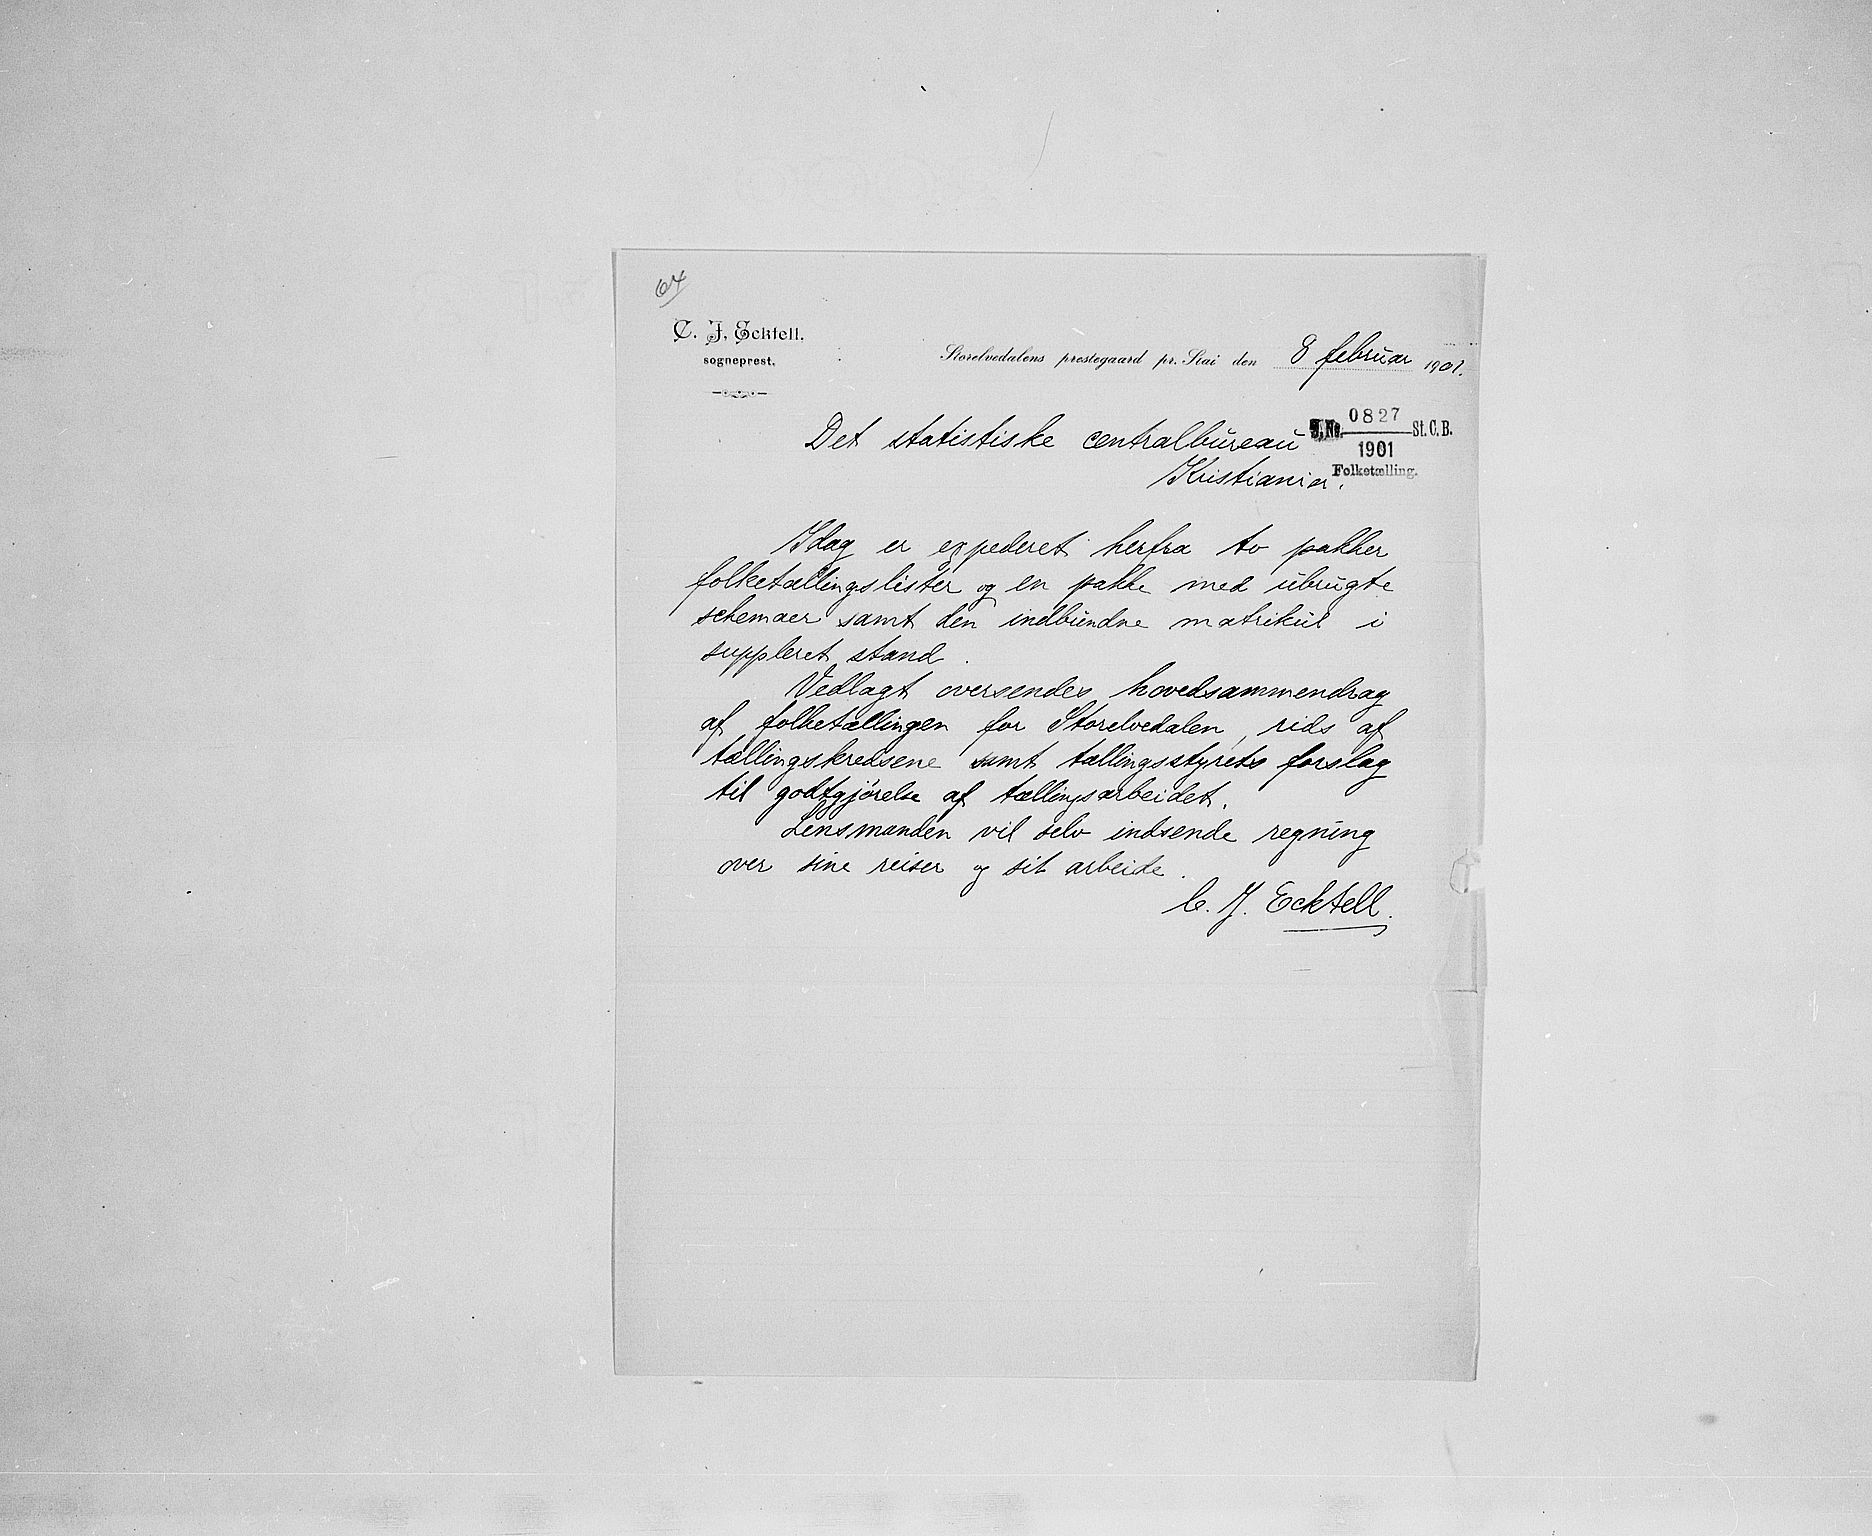 64
C. J. Ecktell.
sogneprest.
Storelvedalens prestegaard pr. Stai den 8 februar 1901.
J.No. 0827 St. C. B.
1901
Folketælling.
Det statistiske centralbureau
Kristiania.
Idag er expederet herfra to pakker
folketællingslister og en pakke med ubrugte
schemaer samt den indbundne matrikul i
suppleret stand.
Vedlagt oversendes hovedsammendrag
af folketællingen for Storelvedalen, rids af
tællingskredsene samt tællingsstyrets forslag
til godtgjörelse af tællingsarbeidet.
Lensmanden vil selv indsende regning
over sine reiser og sit arbeide.
C. J. Ecktell.